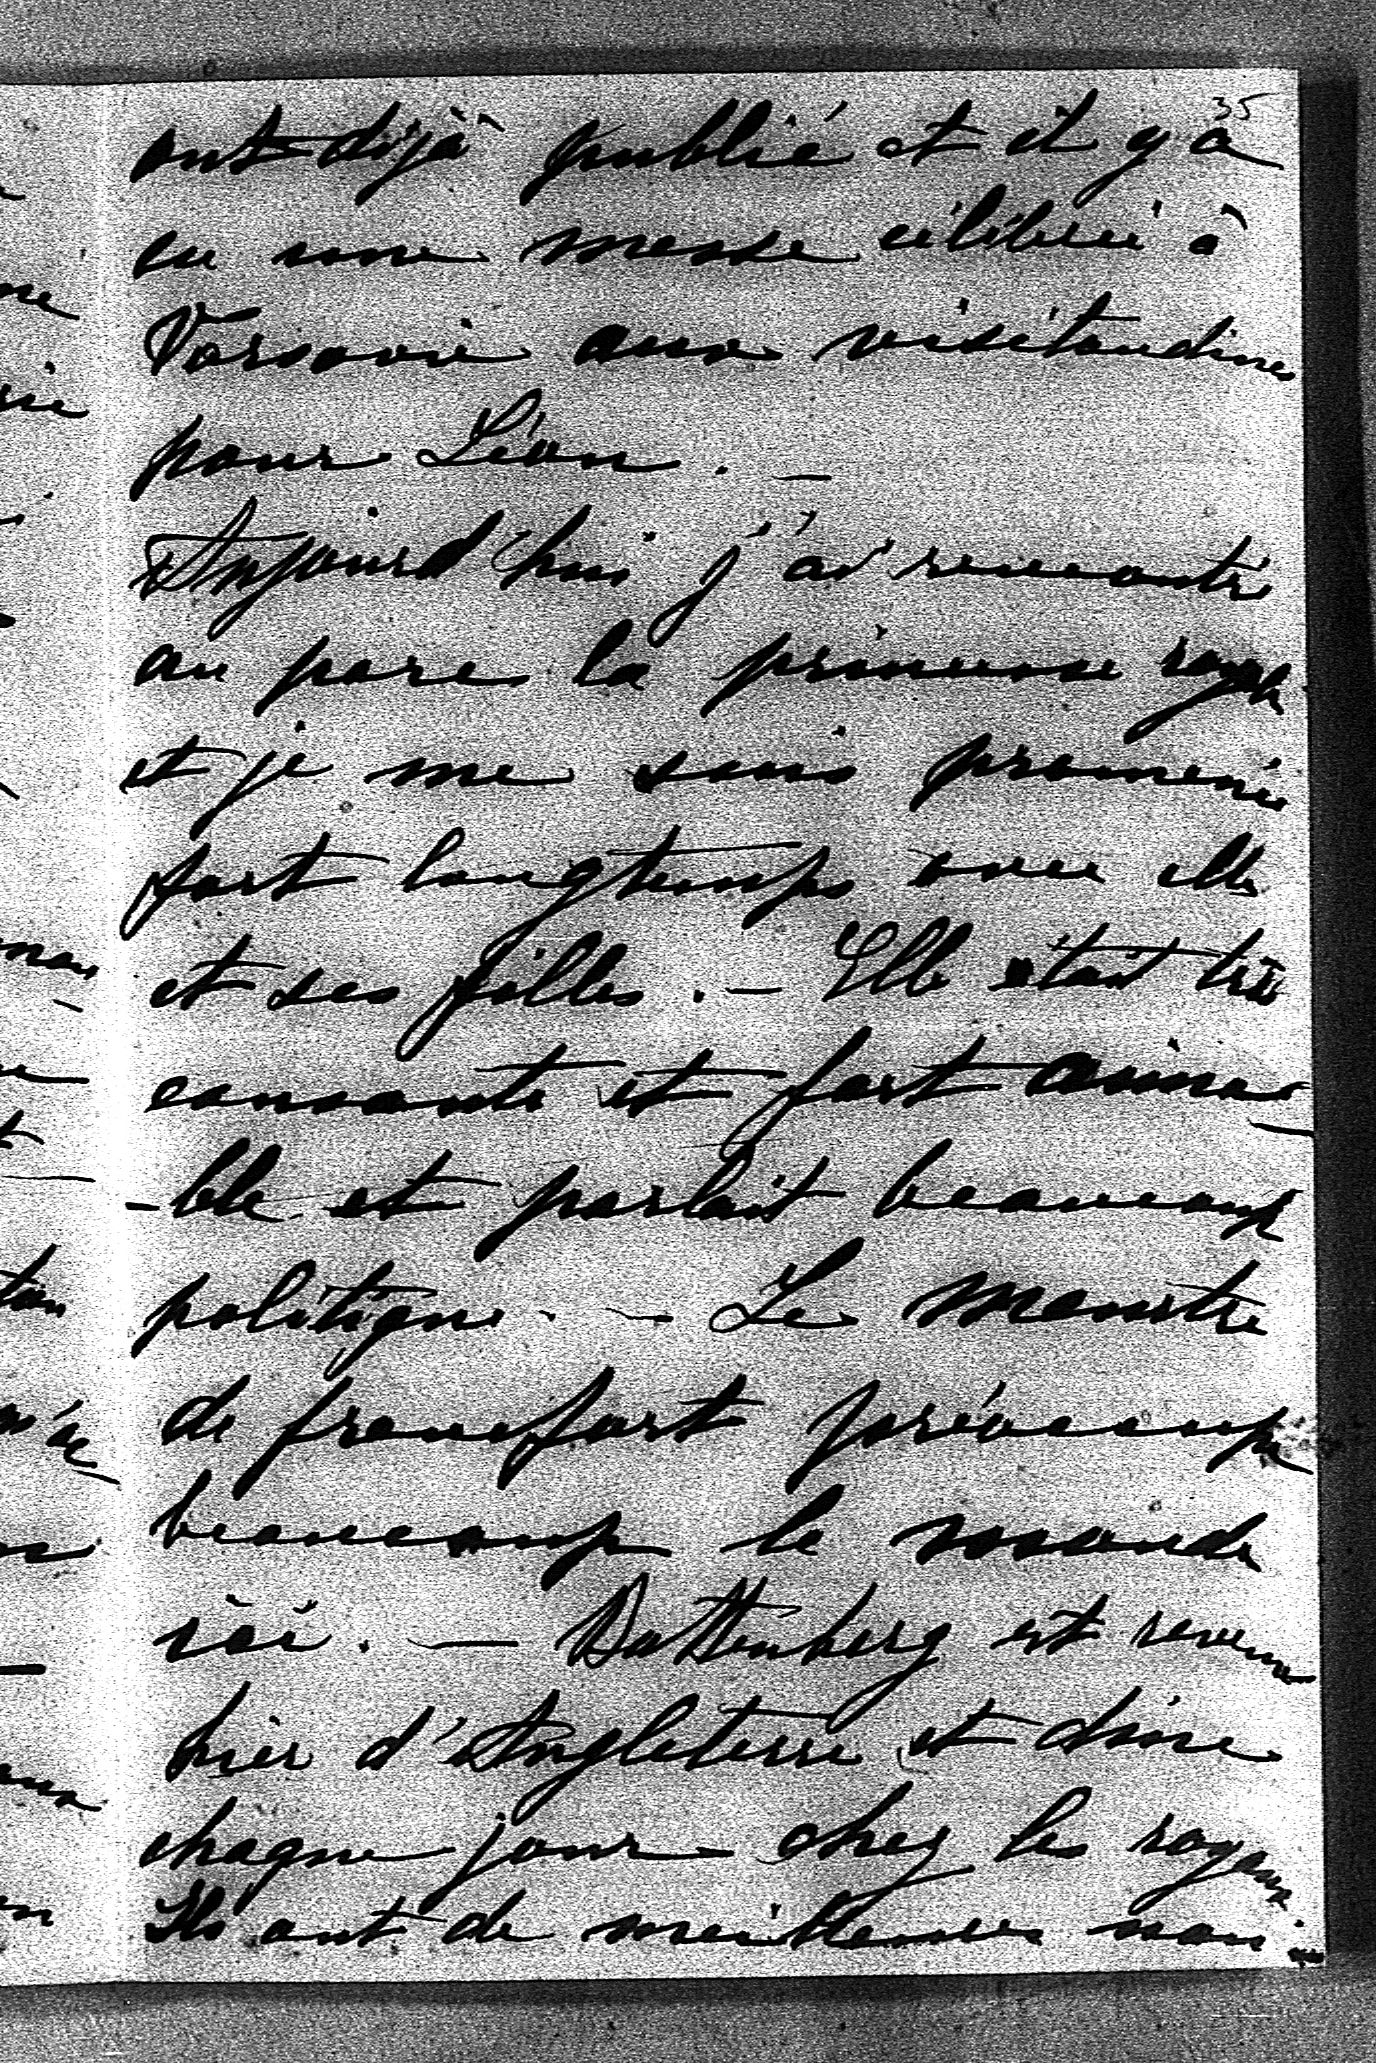 35
ont déjà publié et il y a
eu une messe célébrée à
Varsovie aux visitandines
pour Léon. —
Aujourd'hui j'ai rencontré
au parc la princesse royale
et je me suis promenée
fort longtemps avec elle
et ses filles. — Elle était très
causante et fort aima-
-ble et parlait beaucoup
politique. — Le meurtre
de francfort préoccupe
beaucoup le monde
ici. — Battenberg est revenu
hier d'Angleterre et dîne
chaque jour chez les royaux.
Ils ont de meilleures nou-